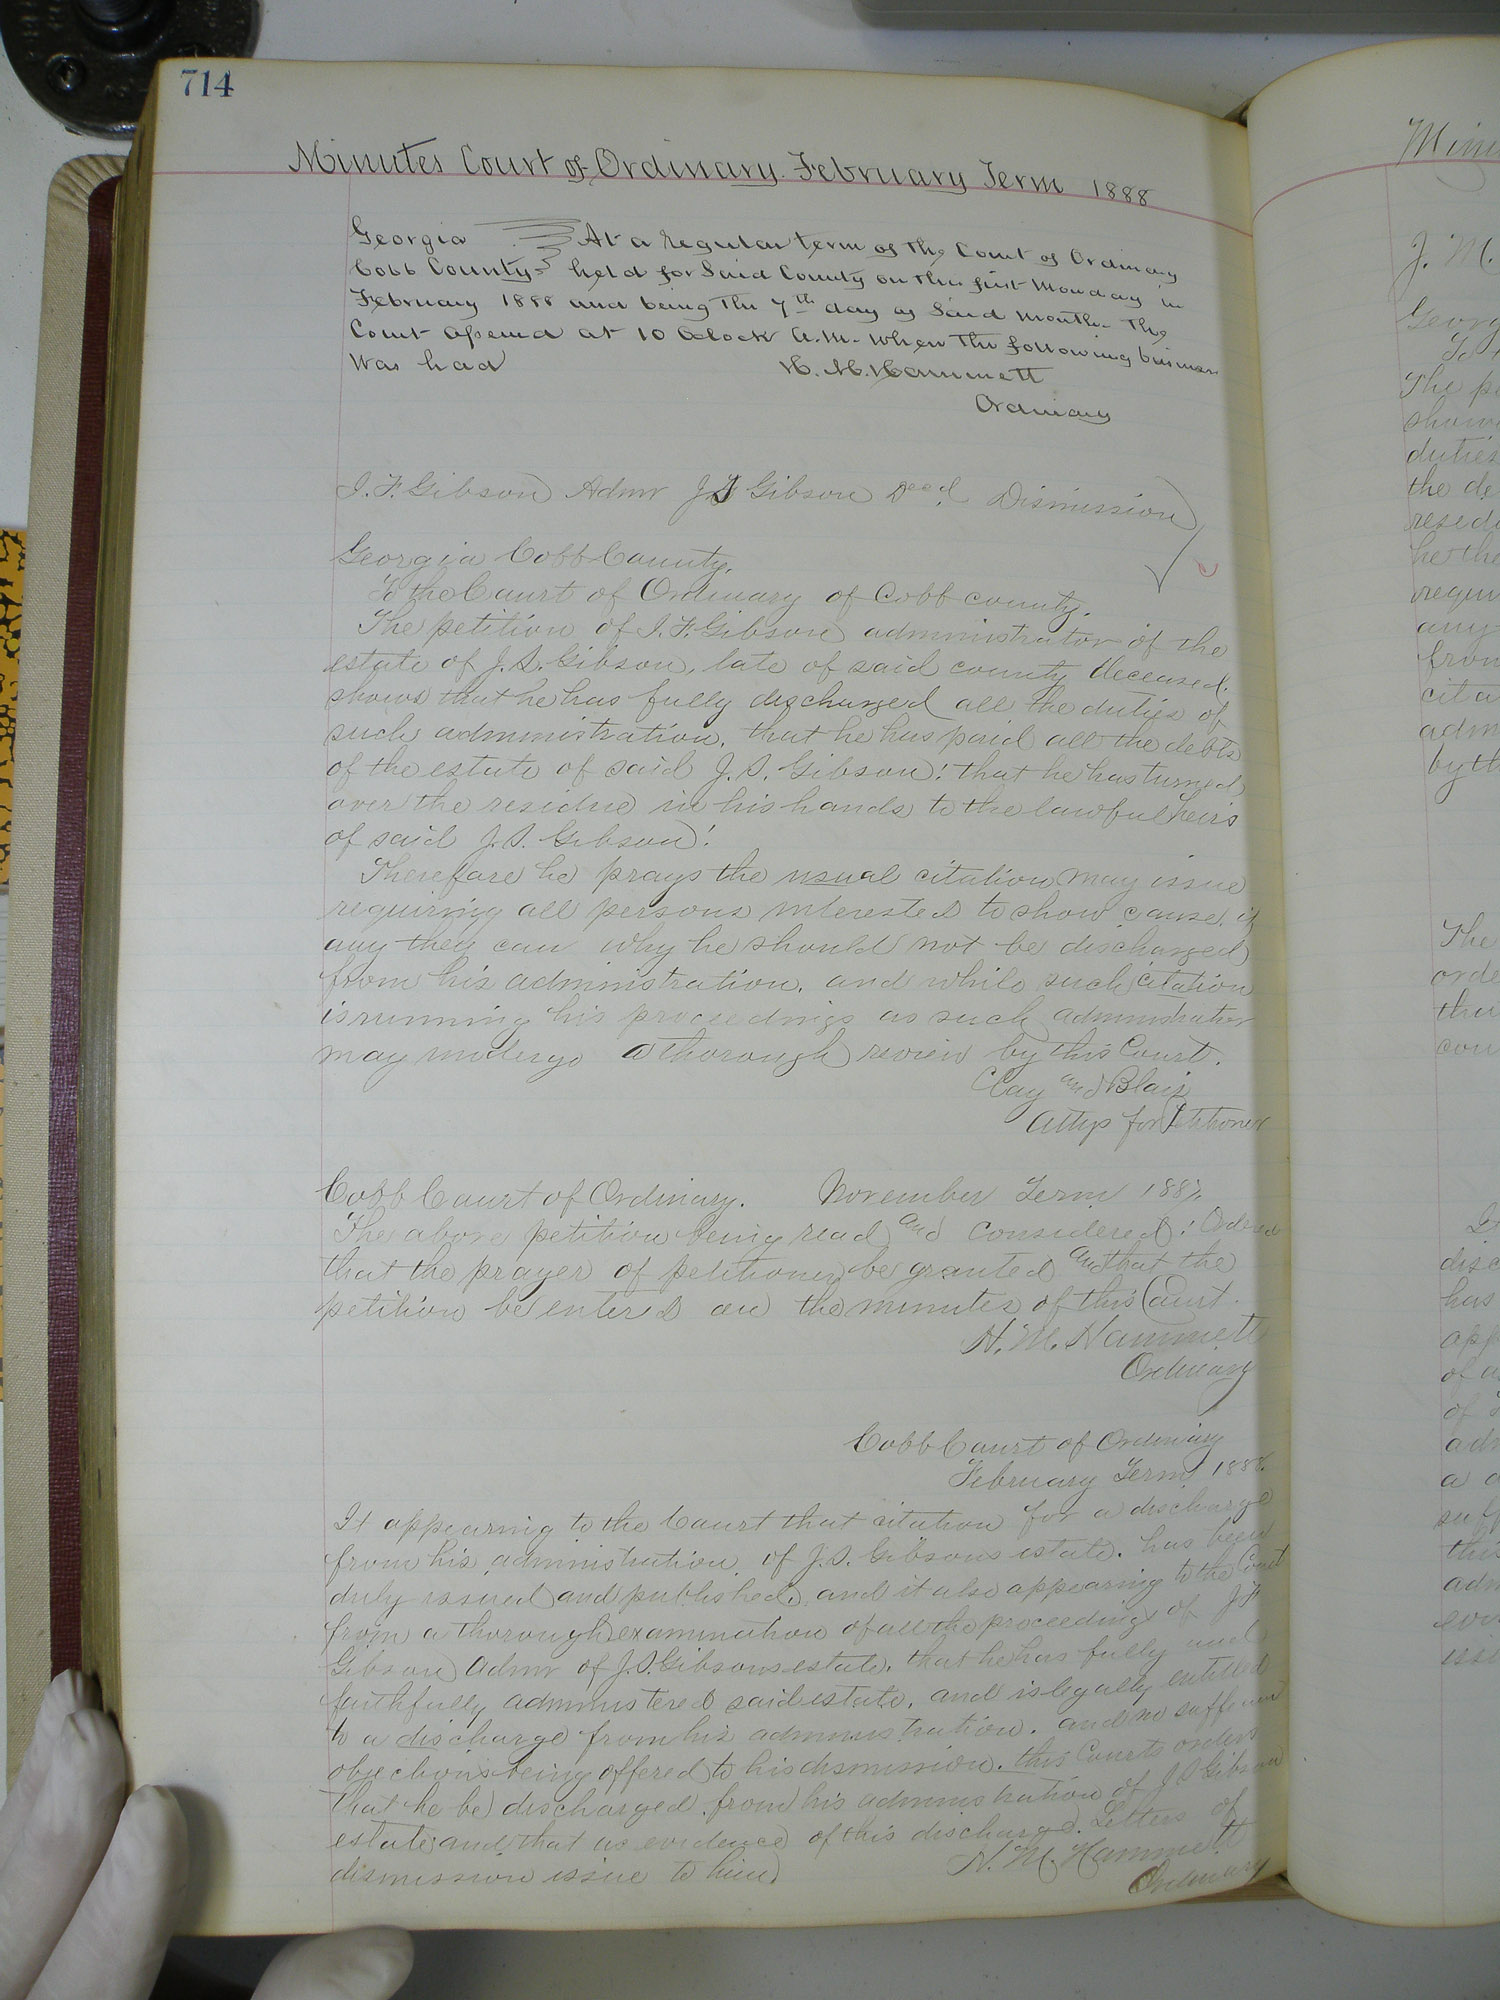 714
Minutes Court of Ordinary February Term 1888
Georgia At a regular term of the Court of Ordinary
Cobb County held for Said County on the first Monday in
February 1888 and being the 7th day of Said month. The
Court opened at 10 Oclock A.M. when the following business
was had H. M. Hammett
Ordinary
I. F. Gibson Admr J S Gibson Decd. Dismission
Georgia Cobb County.
To the Court of Ordinary of Cobb county.
The petition of I. F. Gibson administrator of the
estate of J. S. Gibson, late of said county deceased.
shows that he has fully discharged all the duties of
such administration. that he has paid all the debts
of the estate of said J. S. Gibson! that he has turned
over the residue in his hands to the lawful heirs
of said J. S. Gibson!
Therefore he prays the usual citation may issue
requiring all persons interested to show cause, if
any they can why he should not be discharged
from his administration. and while such citation
is running his proceedings as such administrator
may undergo a thorough review by this Court.
Clay and Blair
Attys for Petitioner
Cobb Court of Ordinary. November Term 1887.
The above petition being read and considered! Ordered
that the prayer of petitioner be granted and that the
petition be entered on the minutes of this Court.
H. M. Hammett
Ordinary
Cobb Court of Ordinary
February Term 1888.
It appearing to the Court that citation for a discharge
from his administration of J. S. Gibsons estate. has been
duly issued and published. and it also appearing to the Court
from a thorough examination of all the proceedings of J F
Gibson Admr of J. S. Gibsons estate. that he has fully and
faithfully administered said estate. and is legally entitled
to a discharge from his administration. and no sufficient
objections being offered to his dismission. this Courts orders
that he be discharged from his administration of J S Gibson
estate and that as evidence of this discharge. Letters of
dismission issue to him H. M. Hammett
Ordinary
Minu
J. M.
Georg
The pe
duties
the de
he the
any
from
cita
adm
by th
The
orde
that
con
disc
has
of
adm
a
this
adm